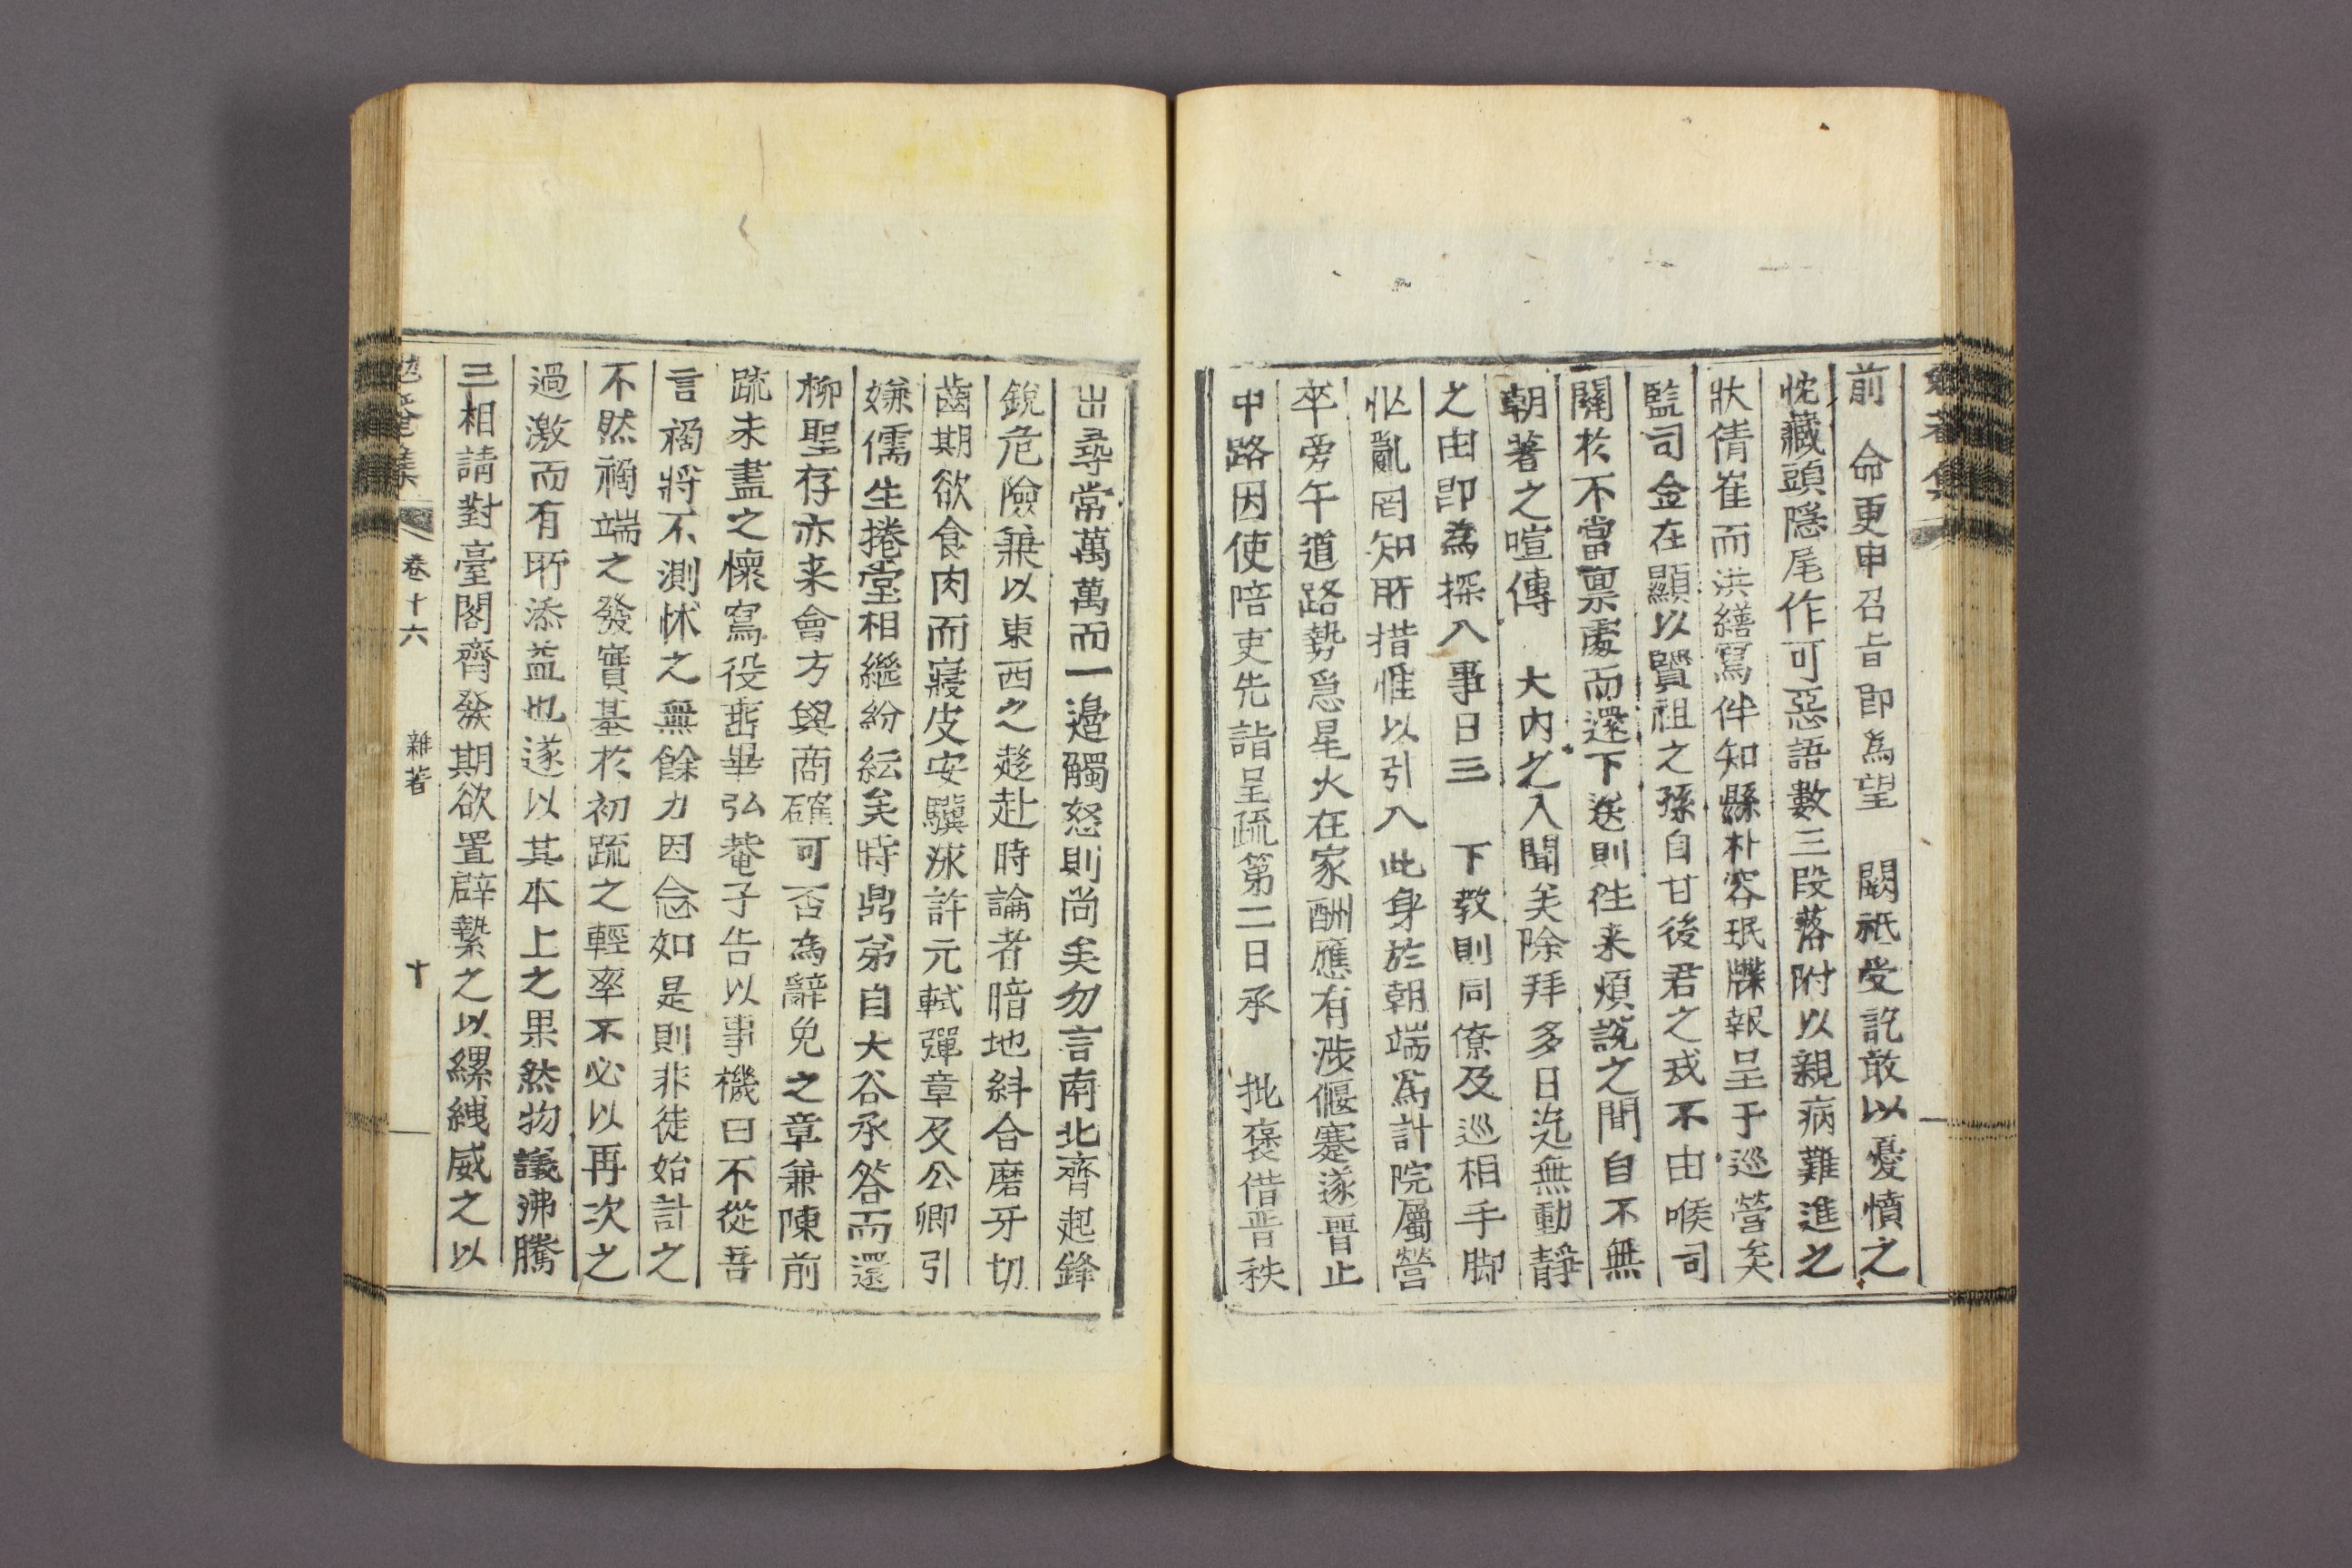 勉菴集
前 命更申召旨卽為望 闕祇受訖敢以憂憤之
忱藏頭隱尾作可惡語數三段落附以親病難進之
狀倩崔而洪繕寫伴知縣朴容珉牒報呈于巡營矣
監司金在顯以賢祖之孫自甘後君之戎不由喉司
關於不當禀處而還下送則徃来煩說之間自不無
朝著之喧傳 大内之入聞矣除拜多日迄無動靜
之由卽為探入事日三 下教則同僚及巡相手脚
忙亂罔知所措惟以引入此身於朝端為計院屬營
卒旁午道路勢急星火在家酬應有涉偃蹇遂晋止
中路因使陪吏先詣呈疏第二日承 批褒借晋秩
出尋常萬萬而一邉觸怒則尚矣勿言南北齊起鋒
銳危險兼以東西之趍赴時論者暗地紏合磨牙切
齒期欲食肉而寢皮安驥泳許元栻彈章及公卿引
嫌儒生捲堂相繼紛紜矣時鼎弟自大谷承答而還
柳聖存亦来會方與商確可否為辭免之章兼陳前
疏未盡之懷寫役甫畢弘菴子告以事機曰不從吾
言禍將不測怵之無餘力因念如是則非徒始計之
不然禍端之發實基於初疏之輕率不必以再次之
過激而有所添益也遂以其本上之果然物議沸騰
三相請對臺閣齊發期欲置辟縶之以縲絏威之以
勉菴集 卷十六 雜著 十